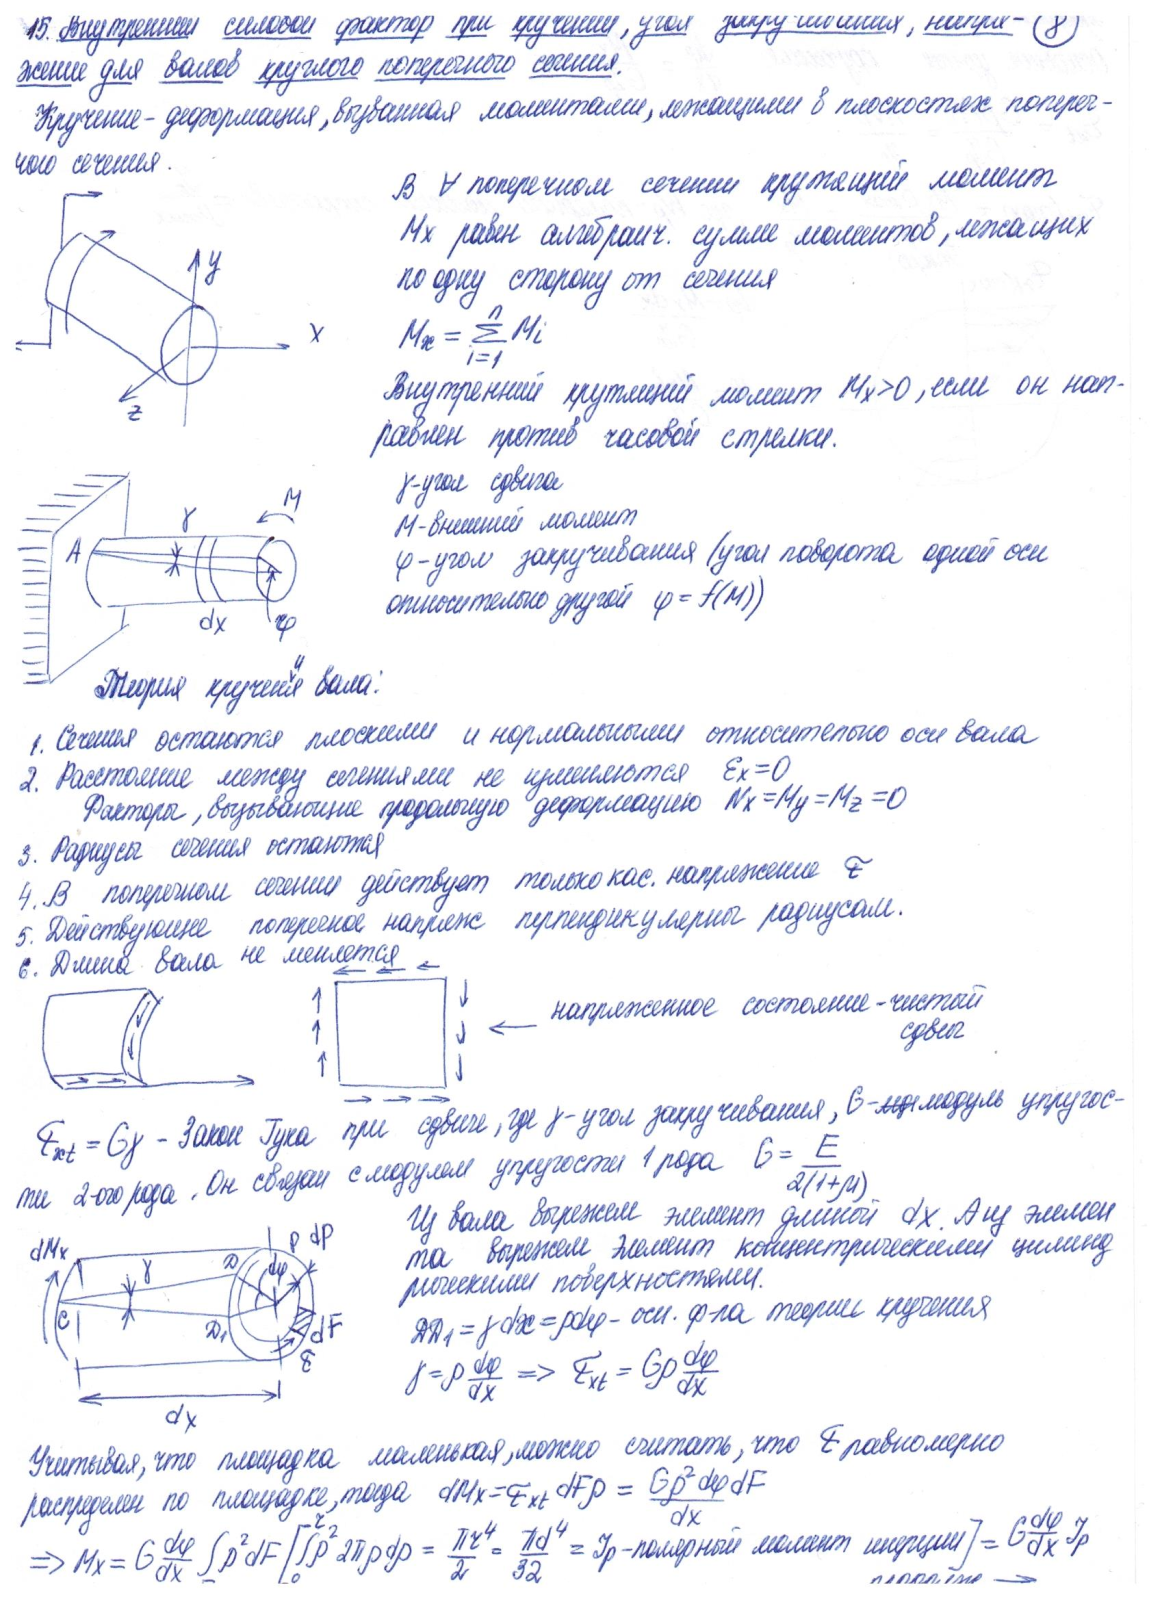 15. Внутренний силовой фактор при кручении, угол закручивания, напря- 8
жение для валов круглого поперечного сечения.
Кручение - деформация, вызванная моментами, лежащими в плоскостях попереч-
ного сечения.
В ∀ поперечном сечении крутящий момент
Mx равен алгебраич. сумме моментов, лежащих
по одну сторону от сечения
Mx = Σ Mi
n
i=1
y
x
z
Внутренний крутящий момент Mx>0, если он нап-
равлен против часовой стрелки.
γ-угол сдвига
M-внешний момент
φ-угол закручивания (угол поворота одной оси
относительно другой φ = f(M))
A γ M
dx φ
Теория кручения вала:
и
1. Сечения остаются плоскими и нормальными относительно оси вала
2. Расстояние между сечениями не изменяются Ɛx=0
Факторы, вызывающие продольную деформацию Nx=My=Mz=0
3. Радиусы сечения остаются
4. В поперечном сечении действует только кас. напряжение τ
5. Действующее поперечное напряж перпендикулярны радиусам.
6. Длина вала не меняется
напряженное состояние - чистый
сдвиг
τxt = Gγ - Закон Гука при сдвиге, где γ-угол закручивания, G-модуль упругос-
ти 2-ого рода. Он связан с модулем упругости 1 рода G = E/2(1+μ)
Из вала вырежем элемент длиной dx. А из элемен
та вырежем элемент концентрическими цилинд
рическими поверхностями.
DD1 = γdx = ρdφ - осн. ф-ла теории кручения
γ = ρ dφ/dx => τxt = Gρ dφ/dx
dMx γ D dφ ρ dρ
C D1 dF
τ
dx
Учитывая, что площадка маленькая, можно считать, что τ равномерно
распределен по площадке, тогда dMx = τxt dFρ = Gρ²dφ/dx dF
=> Mx = G dφ/dx ∫ρ²dF [∫ρ² 2πρdρ = πr⁴/2 = πd⁴/32 = Jp - полярный момент инерции] = G dφ/dx Jp